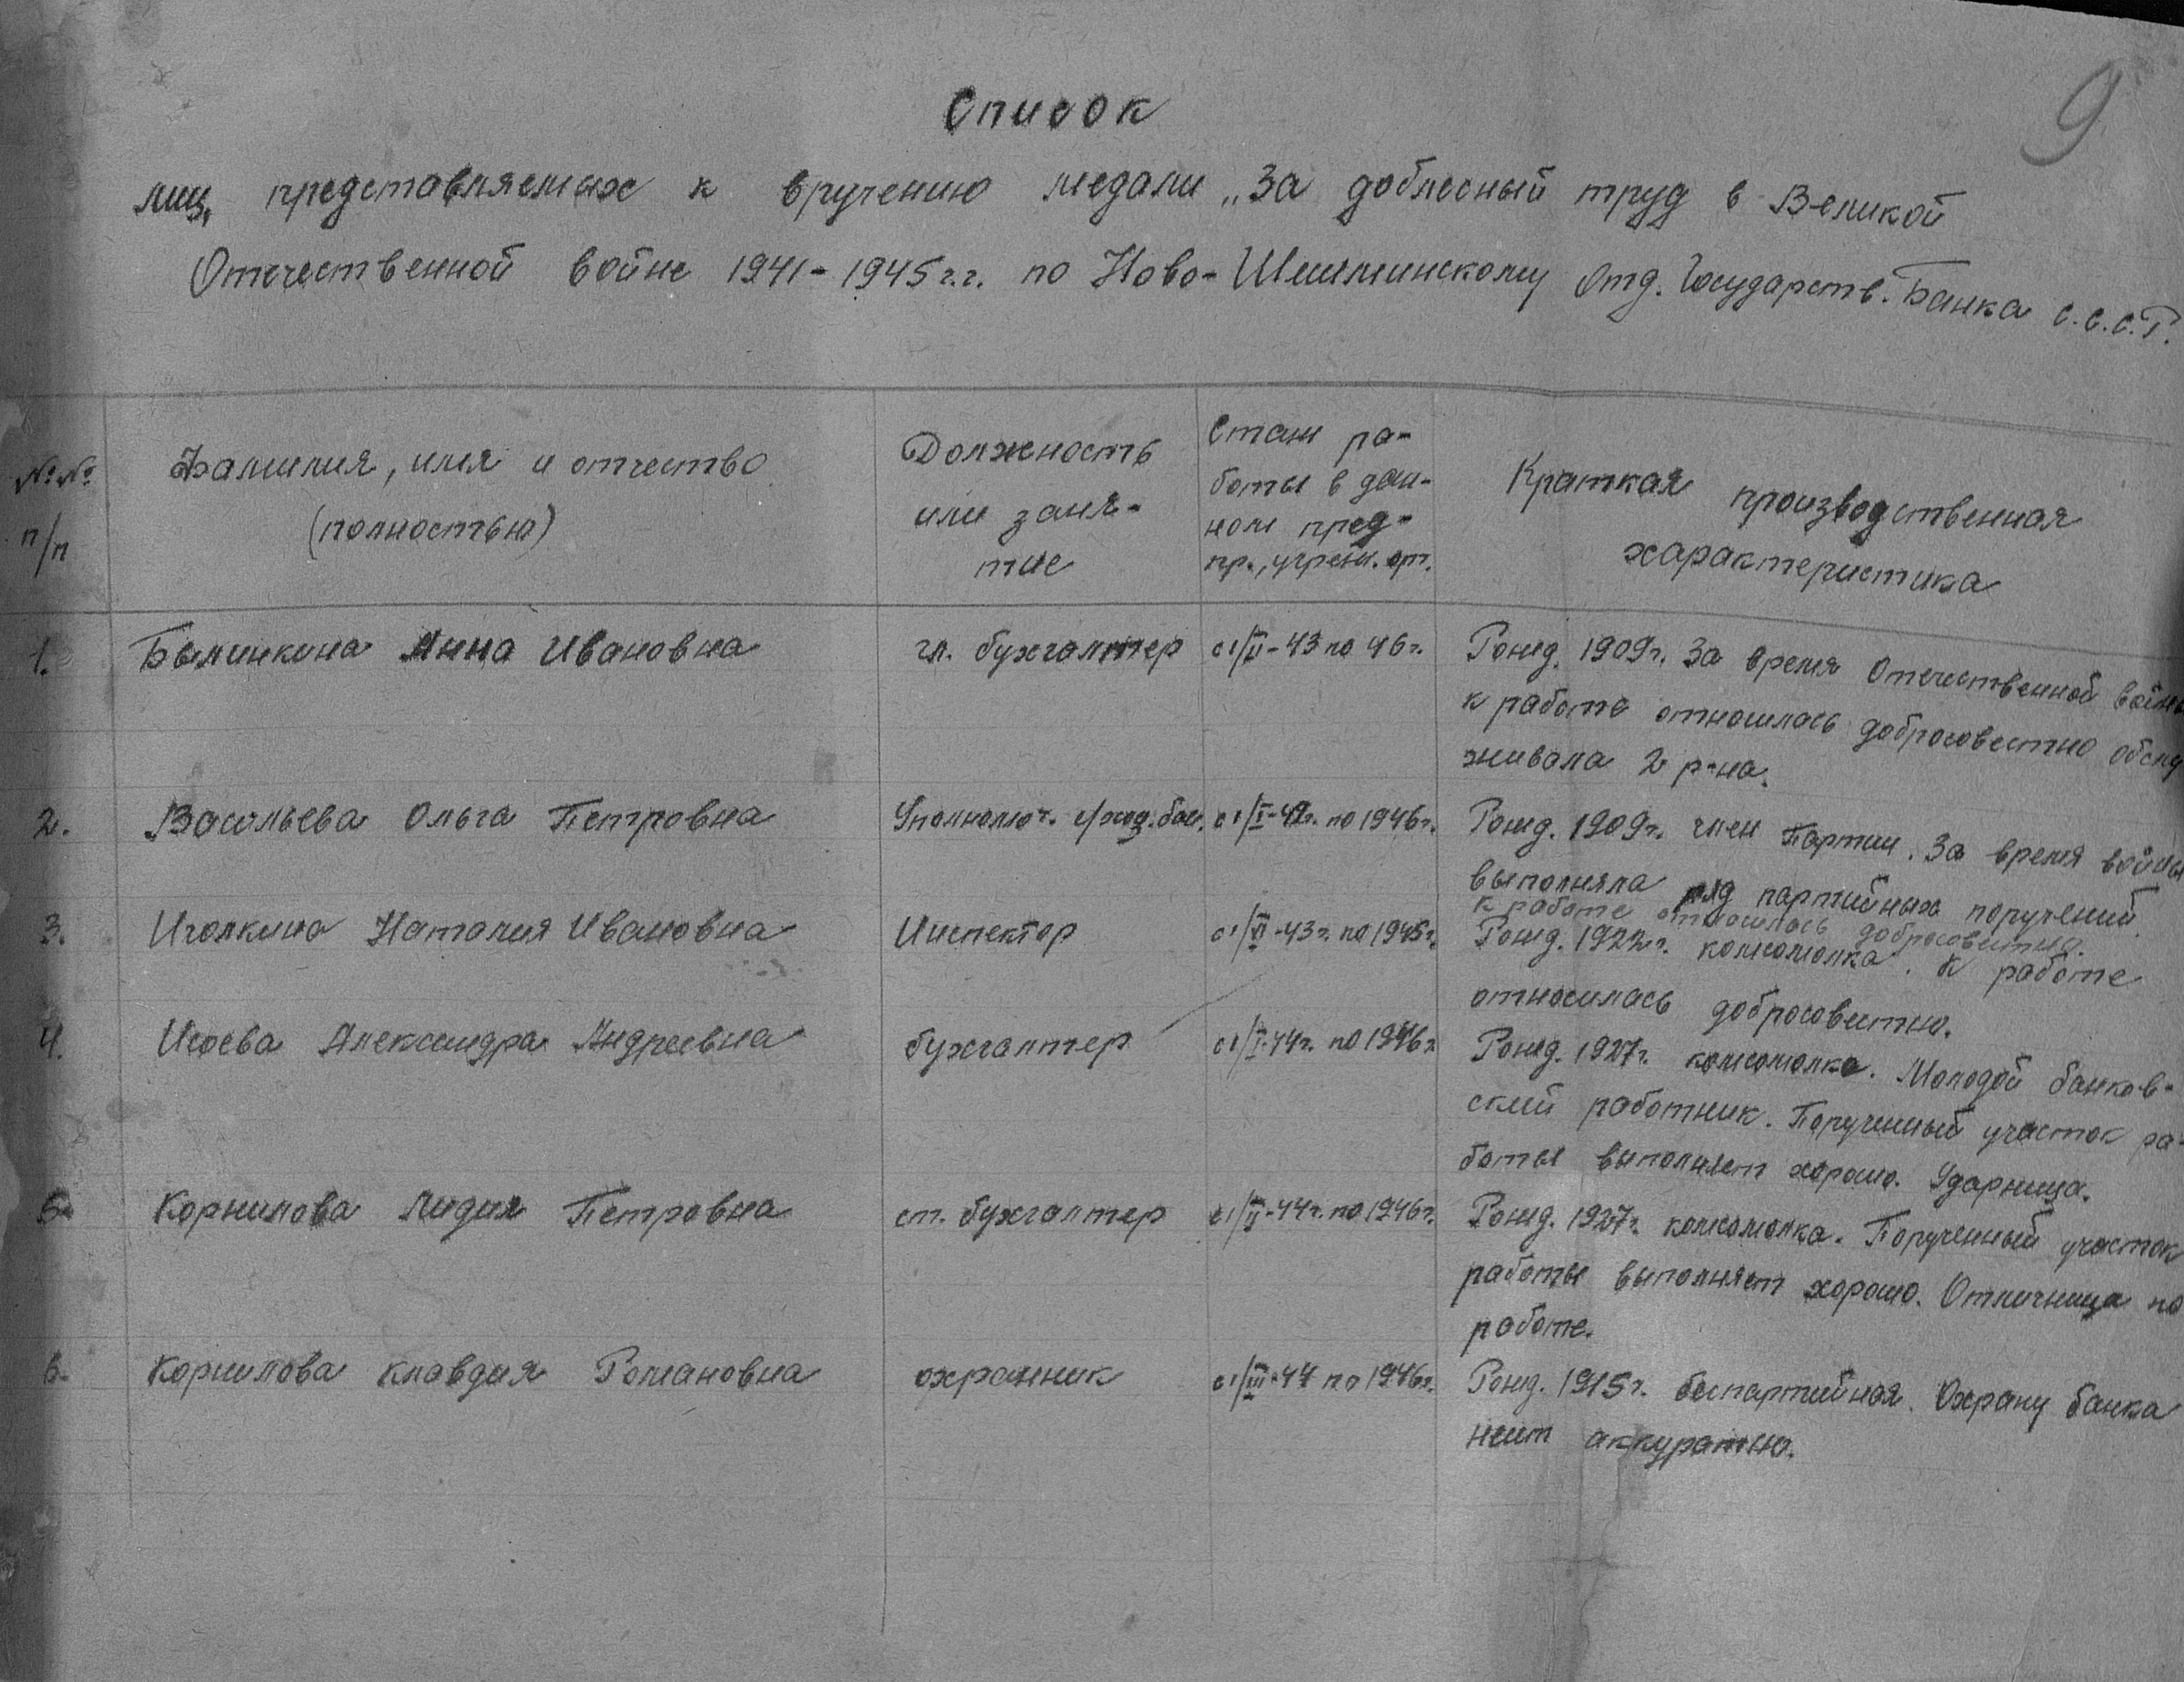 9
Список
лиц, представляемых к вручению медали „За доблесный труд в Великой
Отечественной войне 1941-1945 г.г. по Ново-Шешминскому Отд. Государств. Банка С.С.С.Р.
№№ п/п
Фамилия, имя и отчество (полностью)
Должность
или заня-
тие
Стаж ра-
боты в дан-
ном пред-
пр., учрежд. орг.
Краткая производственная
характеристика
1. Былинкина Анна Ивановна гл. бухгалтер с 1/II-43 по 46 г. Рожд. 1909 г. За время Отечественной войны
к работе относилась добросовестно обслу
живала 2 р-на.
2. Васильева Ольга Петровна Уполномоч. с 1/I-42г. по 1946 г. Рожд. 1909 г. член Партии. За время войны
выполняла ряд партийных поручений.
к работе относилась добросовестно.
3. Иголкина Наталия Ивановна Инспектор с 1/VI-43 г. по 1945 г. Рожд. 1922 г. комсомолка. К работе
относилась добросовестно.
4. Исаева Александра Андреевна бухгалтер с 1/I-44 г. по 1946 г. Рожд. 1927 г. комсомолка. Молодой банков-
ский работник. Порученный участок ра-
боты выполняет хорошо. Ударница.
5. Корнилова Лидия Петровна ст. бухгалтер с 1/II-44 г. по 1946 г. Рожд. 1927 г. комсомолка. Порученный участок
работы выполняет хорошо. Отличница по
работе.
6. Корнилова Клавдия Романовна охранник с 1/III-44 по 1946 г. Рожд. 1915 г. беспартийная. Охрану банка
несет аккуратно.